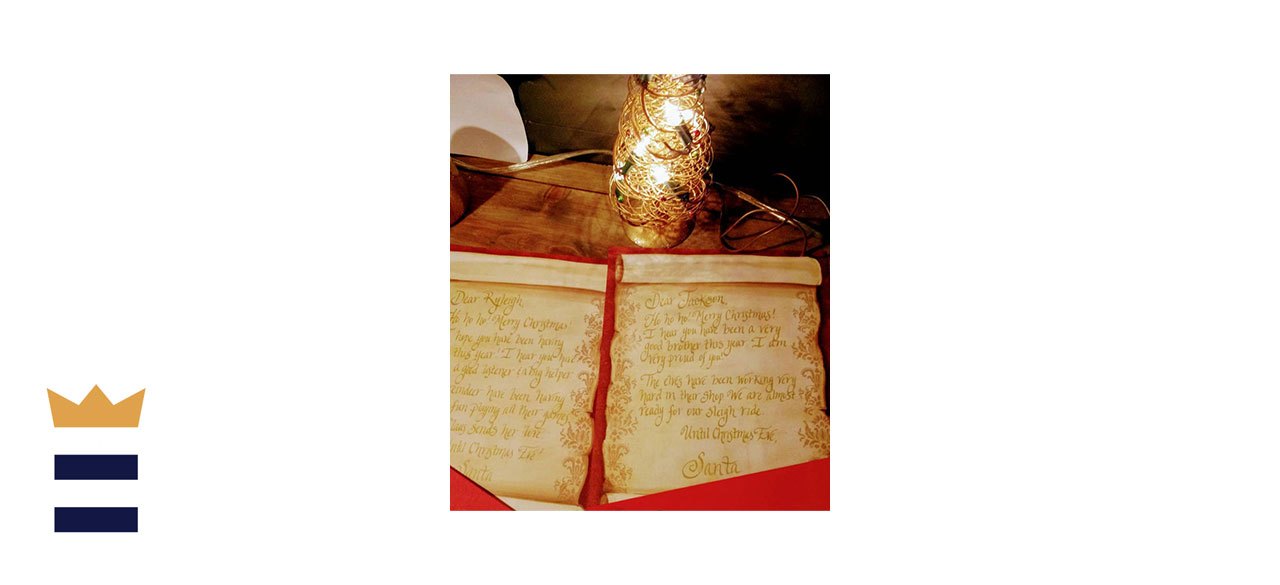 Dear Ryleigh,
Ho ho ho! Merry Christmas!
hope you have been having
this year. I hear you have
a good listener & a big helper
reindeer have been having
fun playing all their games
Claus sends her love
until Christmas Eve!
Santa
Dear Jackson,
Ho ho ho! Merry Christmas!
I hear you have been a very
good brother this year. I am
very proud of you!
The elves have been working very
hard in their shop. We are almost
ready for our sleigh ride.
Until Christmas Eve,
Santa